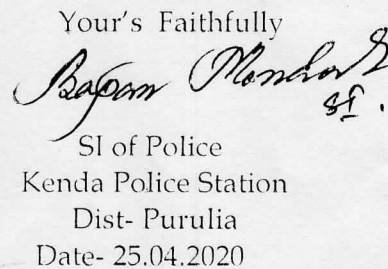 Your's Faithfully
Bapan Mondal
SI.
SI of Police
Kenda Police Station
Dist- Purulia
Date- 25.04.2020